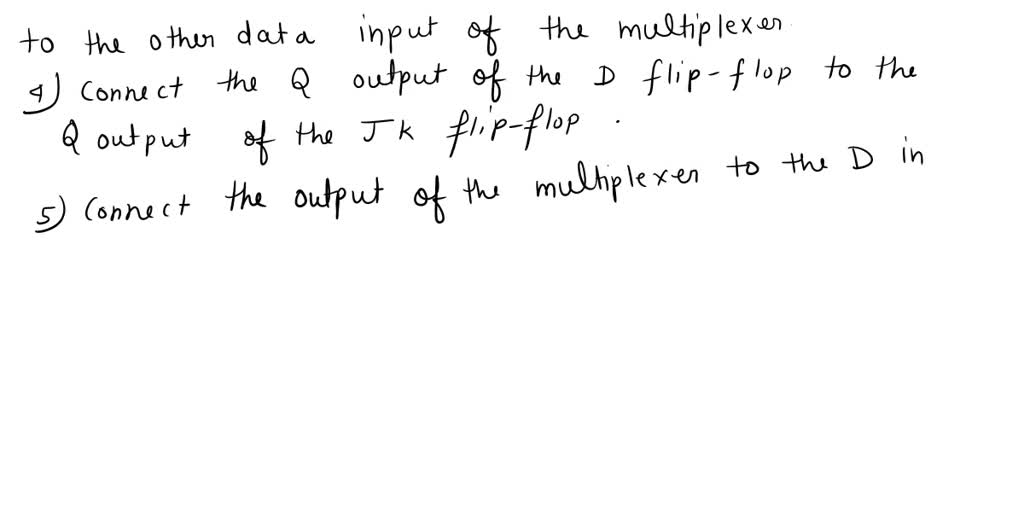 to the other data input of the multiplexer.
4) Connect the Q output of the D flip-flop to the
Q output of the JK flip-flop.
5) Connect the output of the multiplexer to the D in